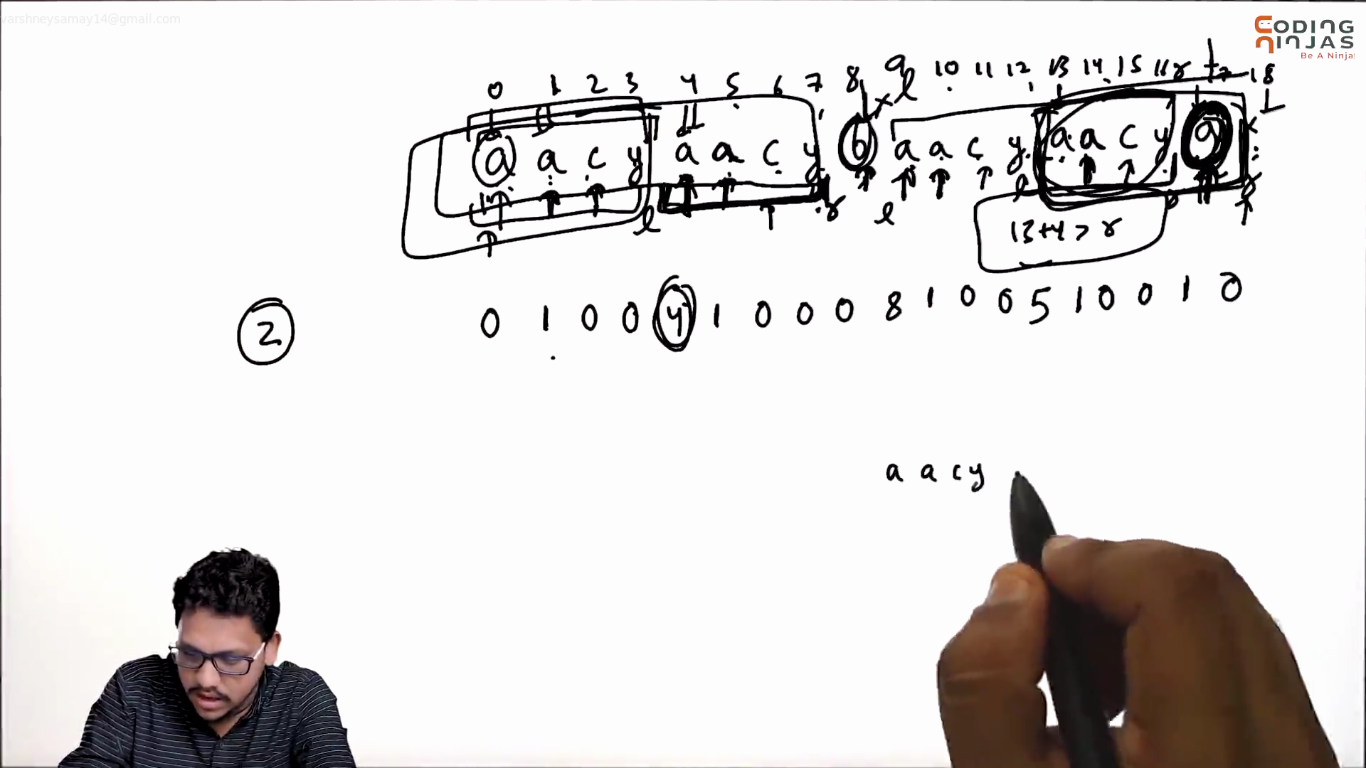 varshneysamay14@gmail.com
CODING NINJAS
Be A Ninja
0 1 2 3 4 5 6 7 8 9 10 11 12 13 14 15 16 17 18
l x r
a a c y a a c y b a a c y a a c y a x
l r l l
13+4 > r
2
0 1 0 0 4 1 0 0 0 8 1 0 0 5 1 0 0 1 0
a a c y